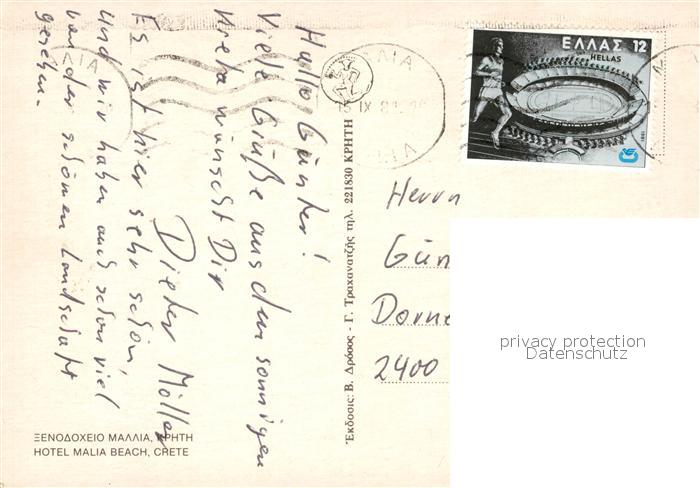 Hallo Günter!
Viele Grüße aus dem sonnigen
Kreta wünscht Dir
Dieter Möller
Es ist hier sehr schön,
und wir haben auch schon viel
von der schönen Landschaft
gesehen.
ΞΕΝΟΔΟΧΕΙΟ ΜΑΛΛΙΑ, ΚΡΗΤΗ
HOTEL MALIA BEACH, CRETE
Ἔκδοσις: Β. Δρόσος - Γ. Τραχανατζής τηλ. 221830 ΚΡΗΤΗ
ΛΙΑ
IX 81
ΛΙΑ
ΕΛΛΑΣ 12
HELLAS
1981
Herrn
Gün
Dorne
2400
privacy protection
Datenschutz